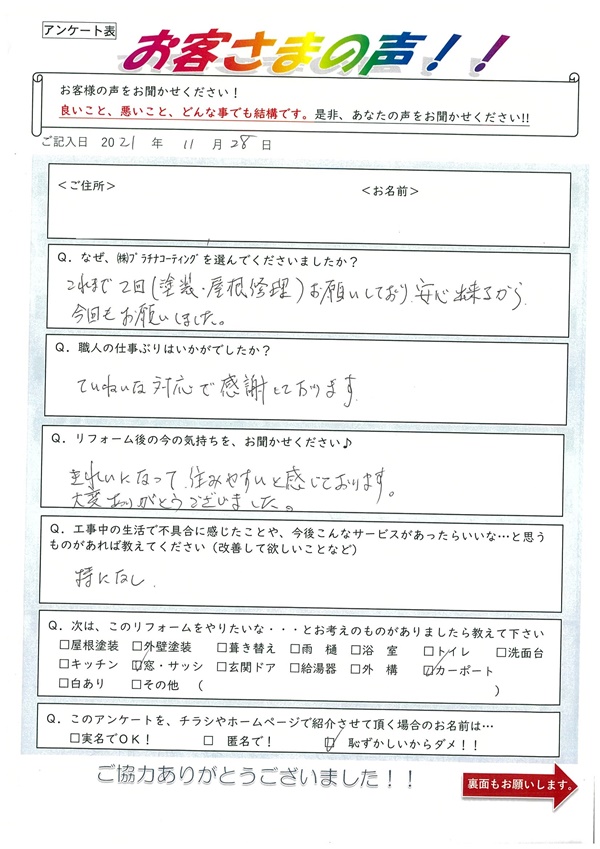 アンケート表
お客さまの声！！
お客様の声をお聞かせください！
良いこと、悪いこと、どんな事でも結構です。是非、あなたの声をお聞かせください!!
ご記入日 2021 年 11 月 28 日
＜ご住所＞ ＜お名前＞
Q．なぜ、㈱ﾌﾟﾗﾁﾅｺｰﾃｨﾝｸﾞを選んでくださいましたか？
これまで2回(塗装・屋根修理)お願いしており、安心出来るから、
今回もお願いしました。
Q．職人の仕事ぶりはいかがでしたか？
ていねいな対応で感謝しております
Q．リフォーム後の今の気持ちを、お聞かせください♪
きれいになって、住みやすいと感じております。
大変ありがとうございました。
Q．工事中の生活で不具合に感じたことや、今後こんなサービスがあったらいいな…と思う
ものがあれば教えてください（改善して欲しいことなど）
特になし
Q．次は、このリフォームをやりたいな・・・とお考えのものがありましたら教えて下さい
□屋根塗装 □外壁塗装 □葺き替え □雨 樋 □浴 室 □トイレ □洗面台
□キッチン ☑窓・サッシ □玄関ドア □給湯器 □外 構 ☑カーポート
□白あり □その他 （ ）
Q．このアンケートを、チラシやホームページで紹介させて頂く場合のお名前は…
□実名でOK！ □ 匿名で！ ☑ 恥ずかしいからダメ！！
ご協力ありがとうございました！！
裏面もお願いします。